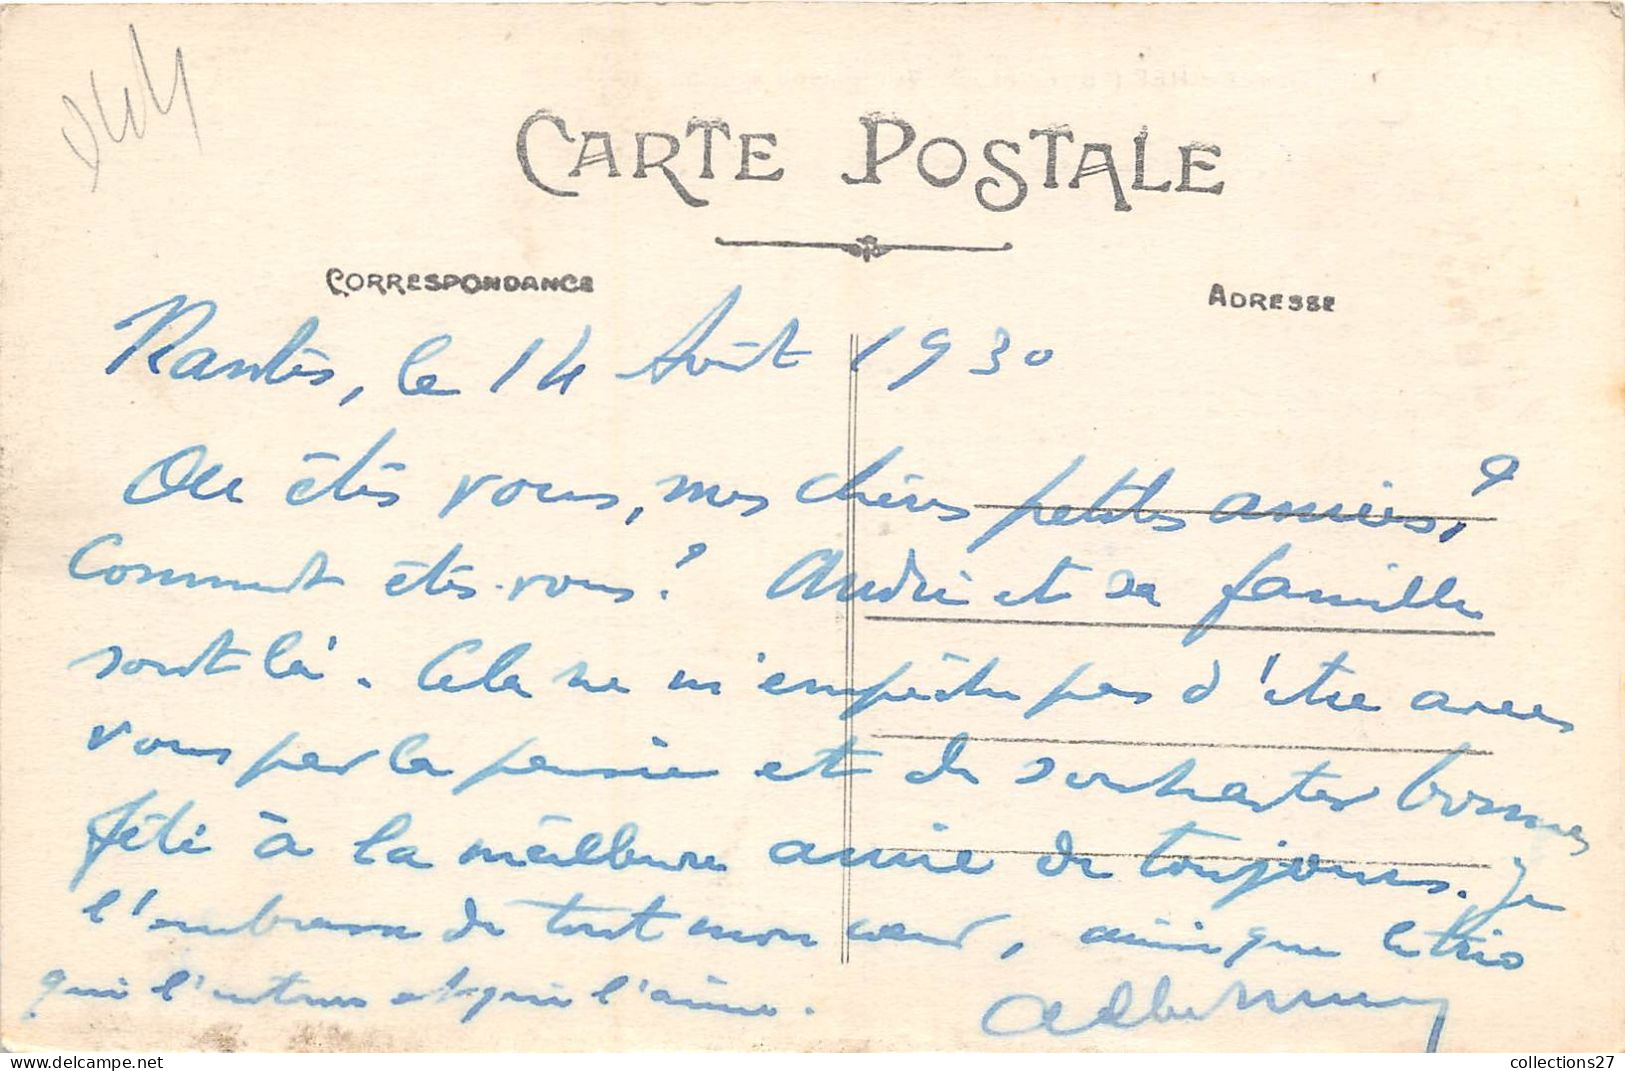 CARTE POSTALE
CORRESPONDANCE
ADRESSE
Nantes, le 14 Août 1930
Ou êtes vous, mes chères petites amies, ?
Comment êtes-vous ? André et sa famille
sont là. Cela ne m'empêche pas d'être avec
vous par la pensée et de souhaiter bonne
fête à la meilleure amie de toujours. Je
l'embrasse de tout mon cœur, ainsi que le trio
qui l'entoure et qui l'aime.
collections27